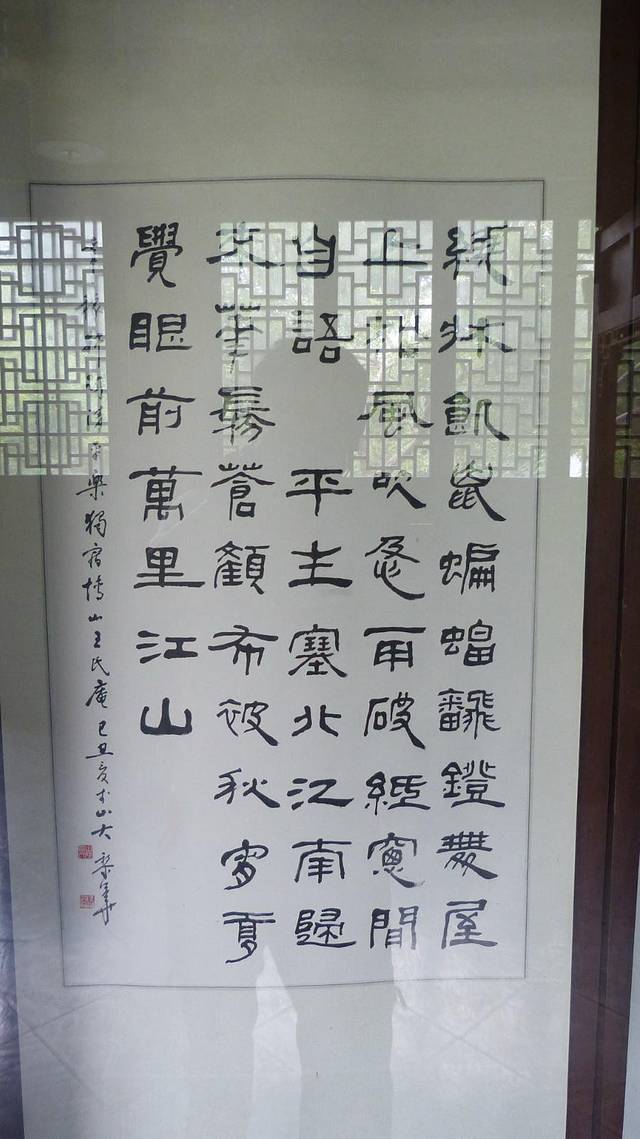 繞牀飢鼠蝙蝠飜鐙舞屋
上松風吹急雨破紙窻間
自語 平生塞北江南歸
來華髮蒼顏布被秋宵夢
覺眼前萬里江山
清平樂獨宿博山王氏庵 己丑夏於山大